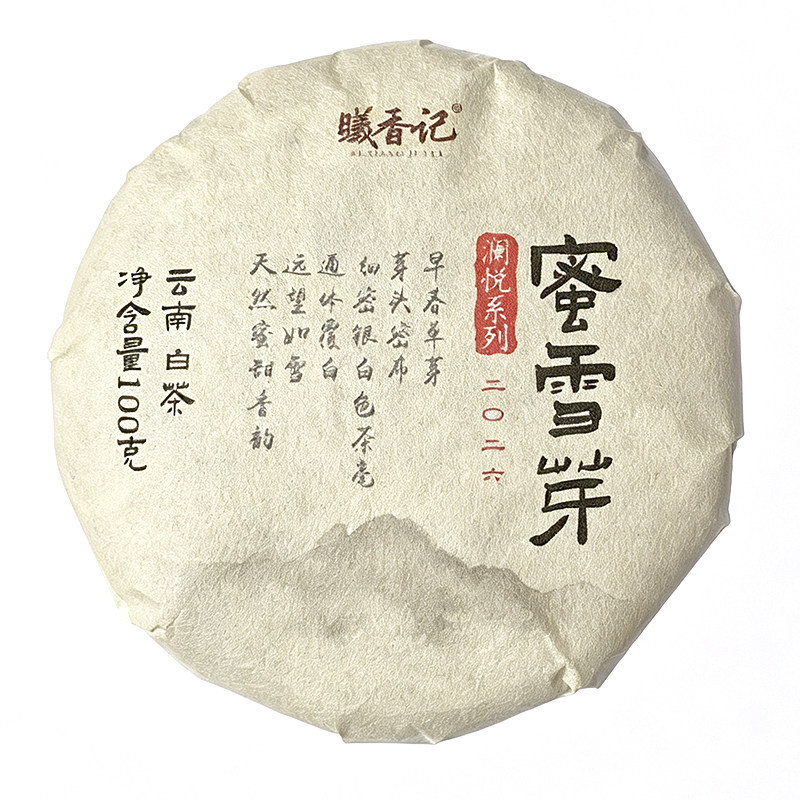 曦香记
蜜雪芽
澜悦系列
二〇二六
早春单芽
芽头密布
细密银白色茶毫
通体覆白
远望如雪
天然蜜甜香韵
云南白茶
净含量100克